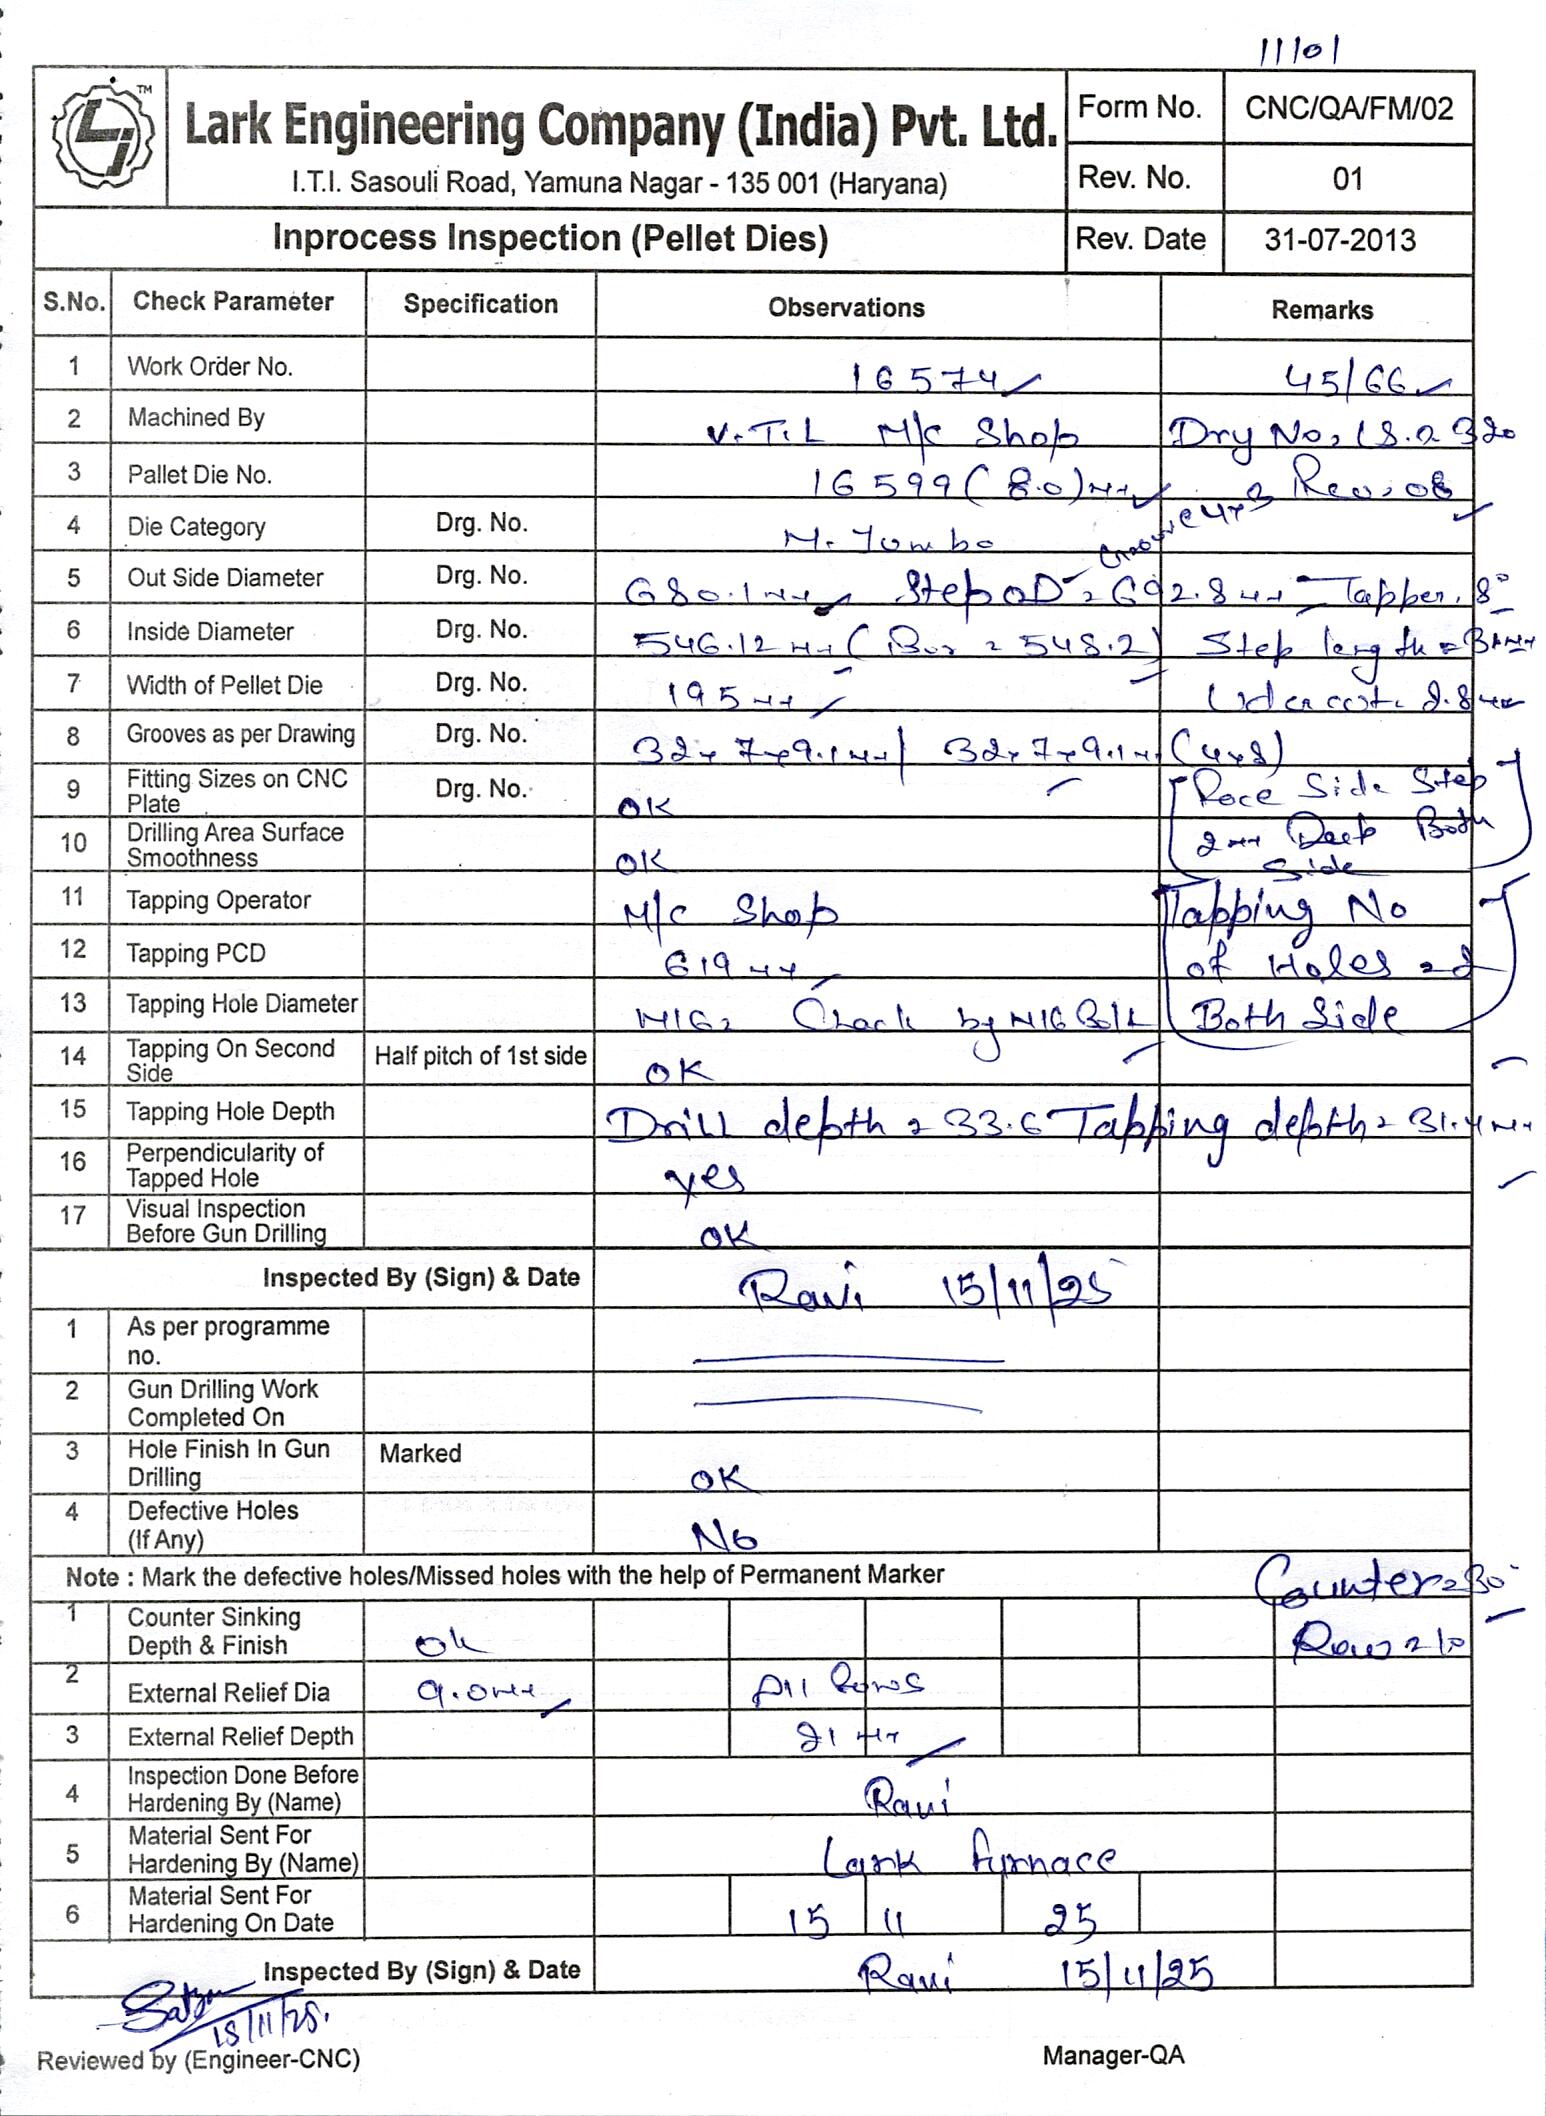 11101
TM
Lark Engineering Company (India) Pvt. Ltd.
I.T.I. Sasouli Road, Yamuna Nagar - 135 001 (Haryana)
Form No. CNC/QA/FM/02
Rev. No. 01
Inprocess Inspection (Pellet Dies) Rev. Date 31-07-2013
S.No. Check Parameter Specification Observations Remarks
1 Work Order No. 16574 45/66
2 Machined By V.T.L M/C Shop
3 Pallet Die No. 16599 (8.0) Rev. 08
4 Die Category Drg. No. M. Jumbo
5 Out Side Diameter Drg. No. 680.1 Step OD 692.8 Tapper. 8°
6 Inside Diameter Drg. No. 546.12 548.2) Step length
7 Width of Pellet Die Drg. No. 195 Undercut
8 Grooves as per Drawing Drg. No. 32x7x9.1 / 32x7x9.1
9 Fitting Sizes on CNC Plate Drg. No. OK Side Step
10 Drilling Area Surface Smoothness OK Deep Both
Side
11 Tapping Operator M/C Shop Tapping No
12 Tapping PCD 619 of Holes
13 Tapping Hole Diameter M16 Check by M16 Bolt Both Side
14 Tapping On Second Side Half pitch of 1st side OK
15 Tapping Hole Depth Drill depth = 33.6 Tapping depth = 31.4
16 Perpendicularity of Tapped Hole yes
17 Visual Inspection Before Gun Drilling OK
Inspected By (Sign) & Date Ravi 15/11/25
1 As per programme no.
2 Gun Drilling Work Completed On
3 Hole Finish In Gun Drilling Marked OK
4 Defective Holes (If Any) No
Note : Mark the defective holes/Missed holes with the help of Permanent Marker Counter
1 Counter Sinking Depth & Finish Ok
2 External Relief Dia 9.0 All Rows
3 External Relief Depth 21
4 Inspection Done Before Hardening By (Name) Ravi
5 Material Sent For Hardening By (Name) Lark furnace
6 Material Sent For Hardening On Date 15 11 25
Inspected By (Sign) & Date Ravi 15/11/25
15/11/25.
Reviewed by (Engineer-CNC) Manager-QA